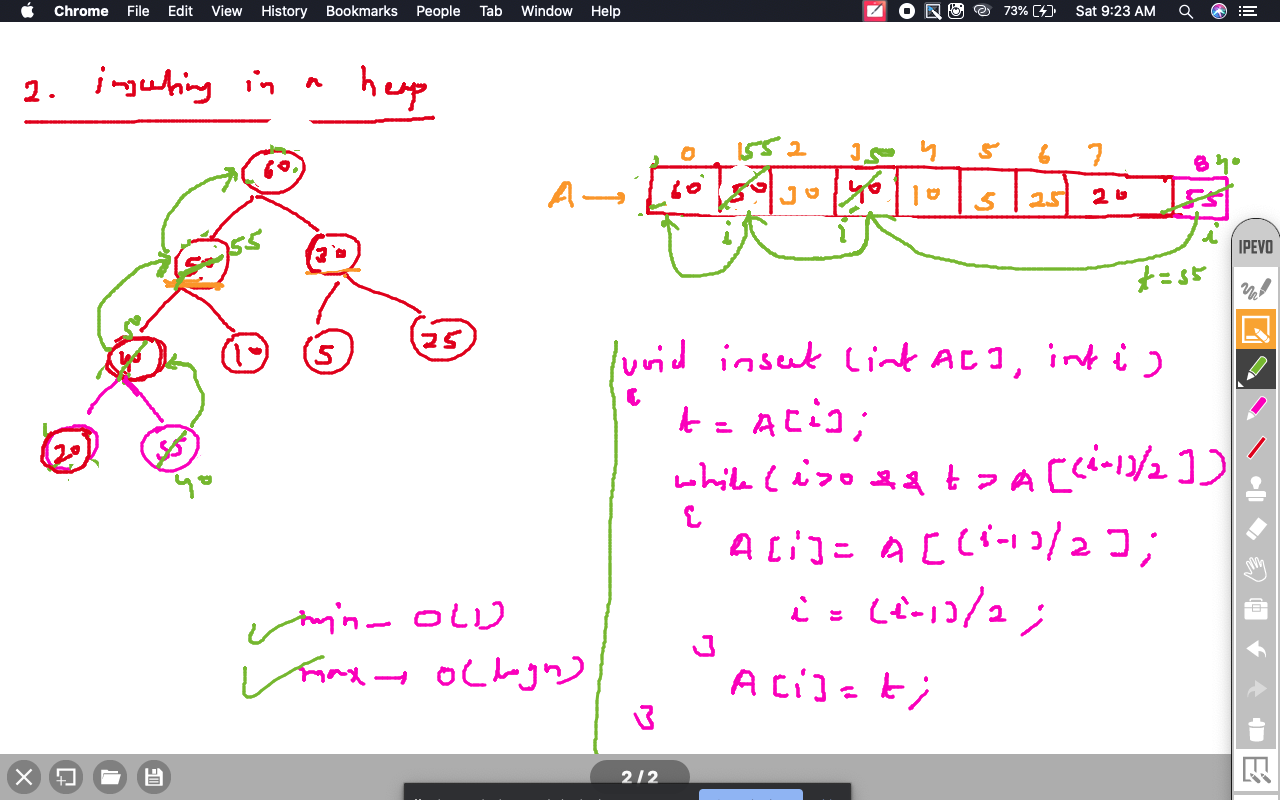 Chrome File Edit View History Bookmarks People Tab Window Help 73% Sat 9:23 AM
2. inserting in a heap
60
50 55
30
50
40
10
5
25
20
55
40
0 1 55 2 3 50 4 5 6 7 8 40
A → 60 50 30 40 10 5 25 20 55
i i i
t = 55
void insert (int A[], int i)
{
t = A[i];
while (i>0 && t > A[(i-1)/2])
{
A[i] = A[(i-1)/2];
i = (i-1)/2;
}
A[i] = t;
}
min - O(1)
max → O(logn)
IPEVO
2 / 2